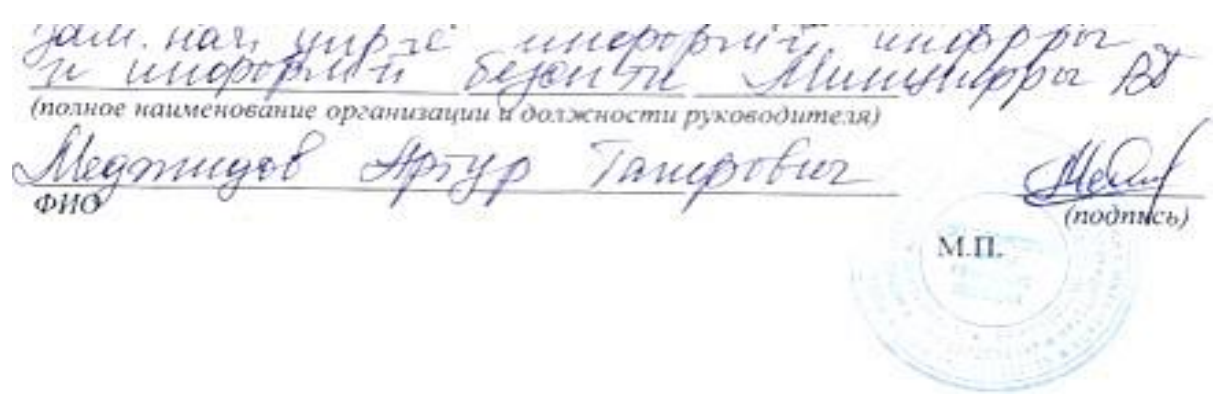 зам. нач. упр-я информ-й инфрры
и информ-й безоп-ти Минцифры РД
(полное наименование организации и должности руководителя)
Меджидов Артур Тагирович
ФИО
(подпись)
М.П.